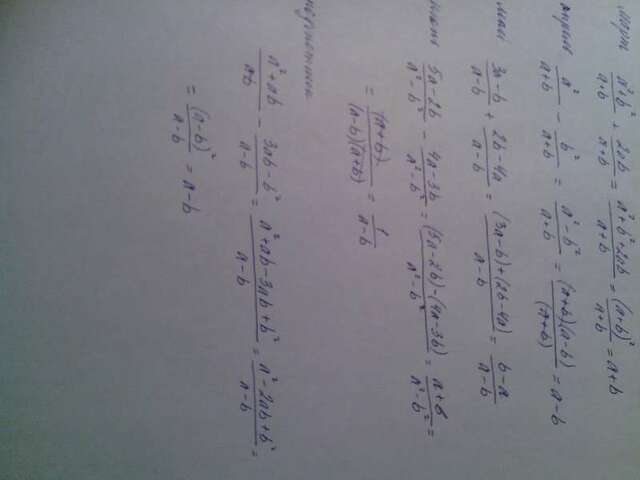 март (a²+b²)/(a+b) + 2ab/(a+b) = (a²+b²+2ab)/(a+b) = (a+b)²/(a+b) = a+b
a²/(a+b) - b²/(a+b) = (a²-b²)/(a+b) = (a+b)(a-b)/(a+b) = a-b
(3a-b)/(a-b) + (2b-4a)/(a-b) = ((3a-b)+(2b-4a))/(a-b) = (b-a)/(a-b)
(5a-2b)/(a²-b²) - (4a-3b)/(a²-b²) = ((5a-2b)-(4a-3b))/(a²-b²) = (a+b)/(a²-b²) =
= (a+b)/((a-b)(a+b)) = 1/(a-b)
(3ab-b²)/(a-b) = (a²+ab-3ab+b²)/(a-b) = (a²-2ab+b²)/(a-b) =
= (a-b)²/(a-b) = a-b